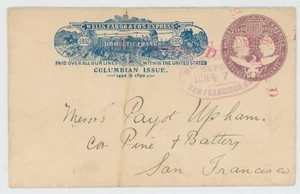 WELLS FARGO & CO'S EXPRESS.
DOMESTIC FRANK
PAID OVER ALL OUR LINES WITHIN THE UNITED STATES
COLUMBIAN ISSUE.
SAN FRANCISCO
Messrs Payot Upham.
Cor Pine & Battery
San Francisco